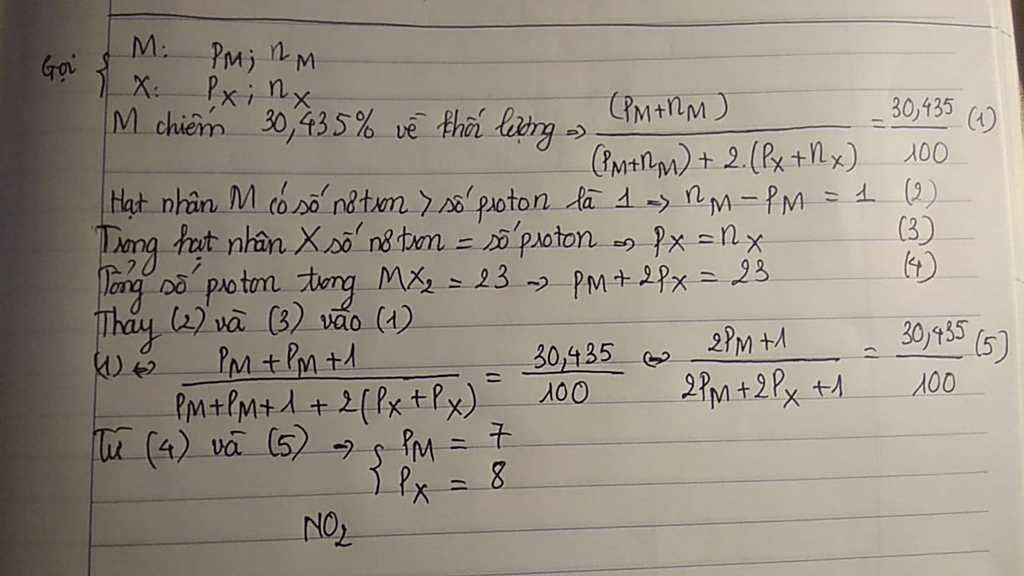 Gọi { M: pM; nM
X: pX; nX
M chiếm 30,435% về khối lượng => (pM+nM) / ((pM+nM) + 2.(pX+nX)) = 30,435/100 (1)
Hạt nhân M có số nơtron > số proton là 1 => nM - pM = 1 (2)
Trong hạt nhân X số nơtron = số proton => pX = nX (3)
Tổng số proton trong MX2 = 23 -> pM + 2pX = 23 (4)
Thay (2) và (3) vào (1)
(1) <=> (pM + pM + 1) / (pM+pM+1 + 2(pX+pX)) = 30,435/100 <=> (2pM+1) / (2pM+2pX+1) = 30,435/100 (5)
Từ (4) và (5) => { pM = 7
pX = 8
NO2